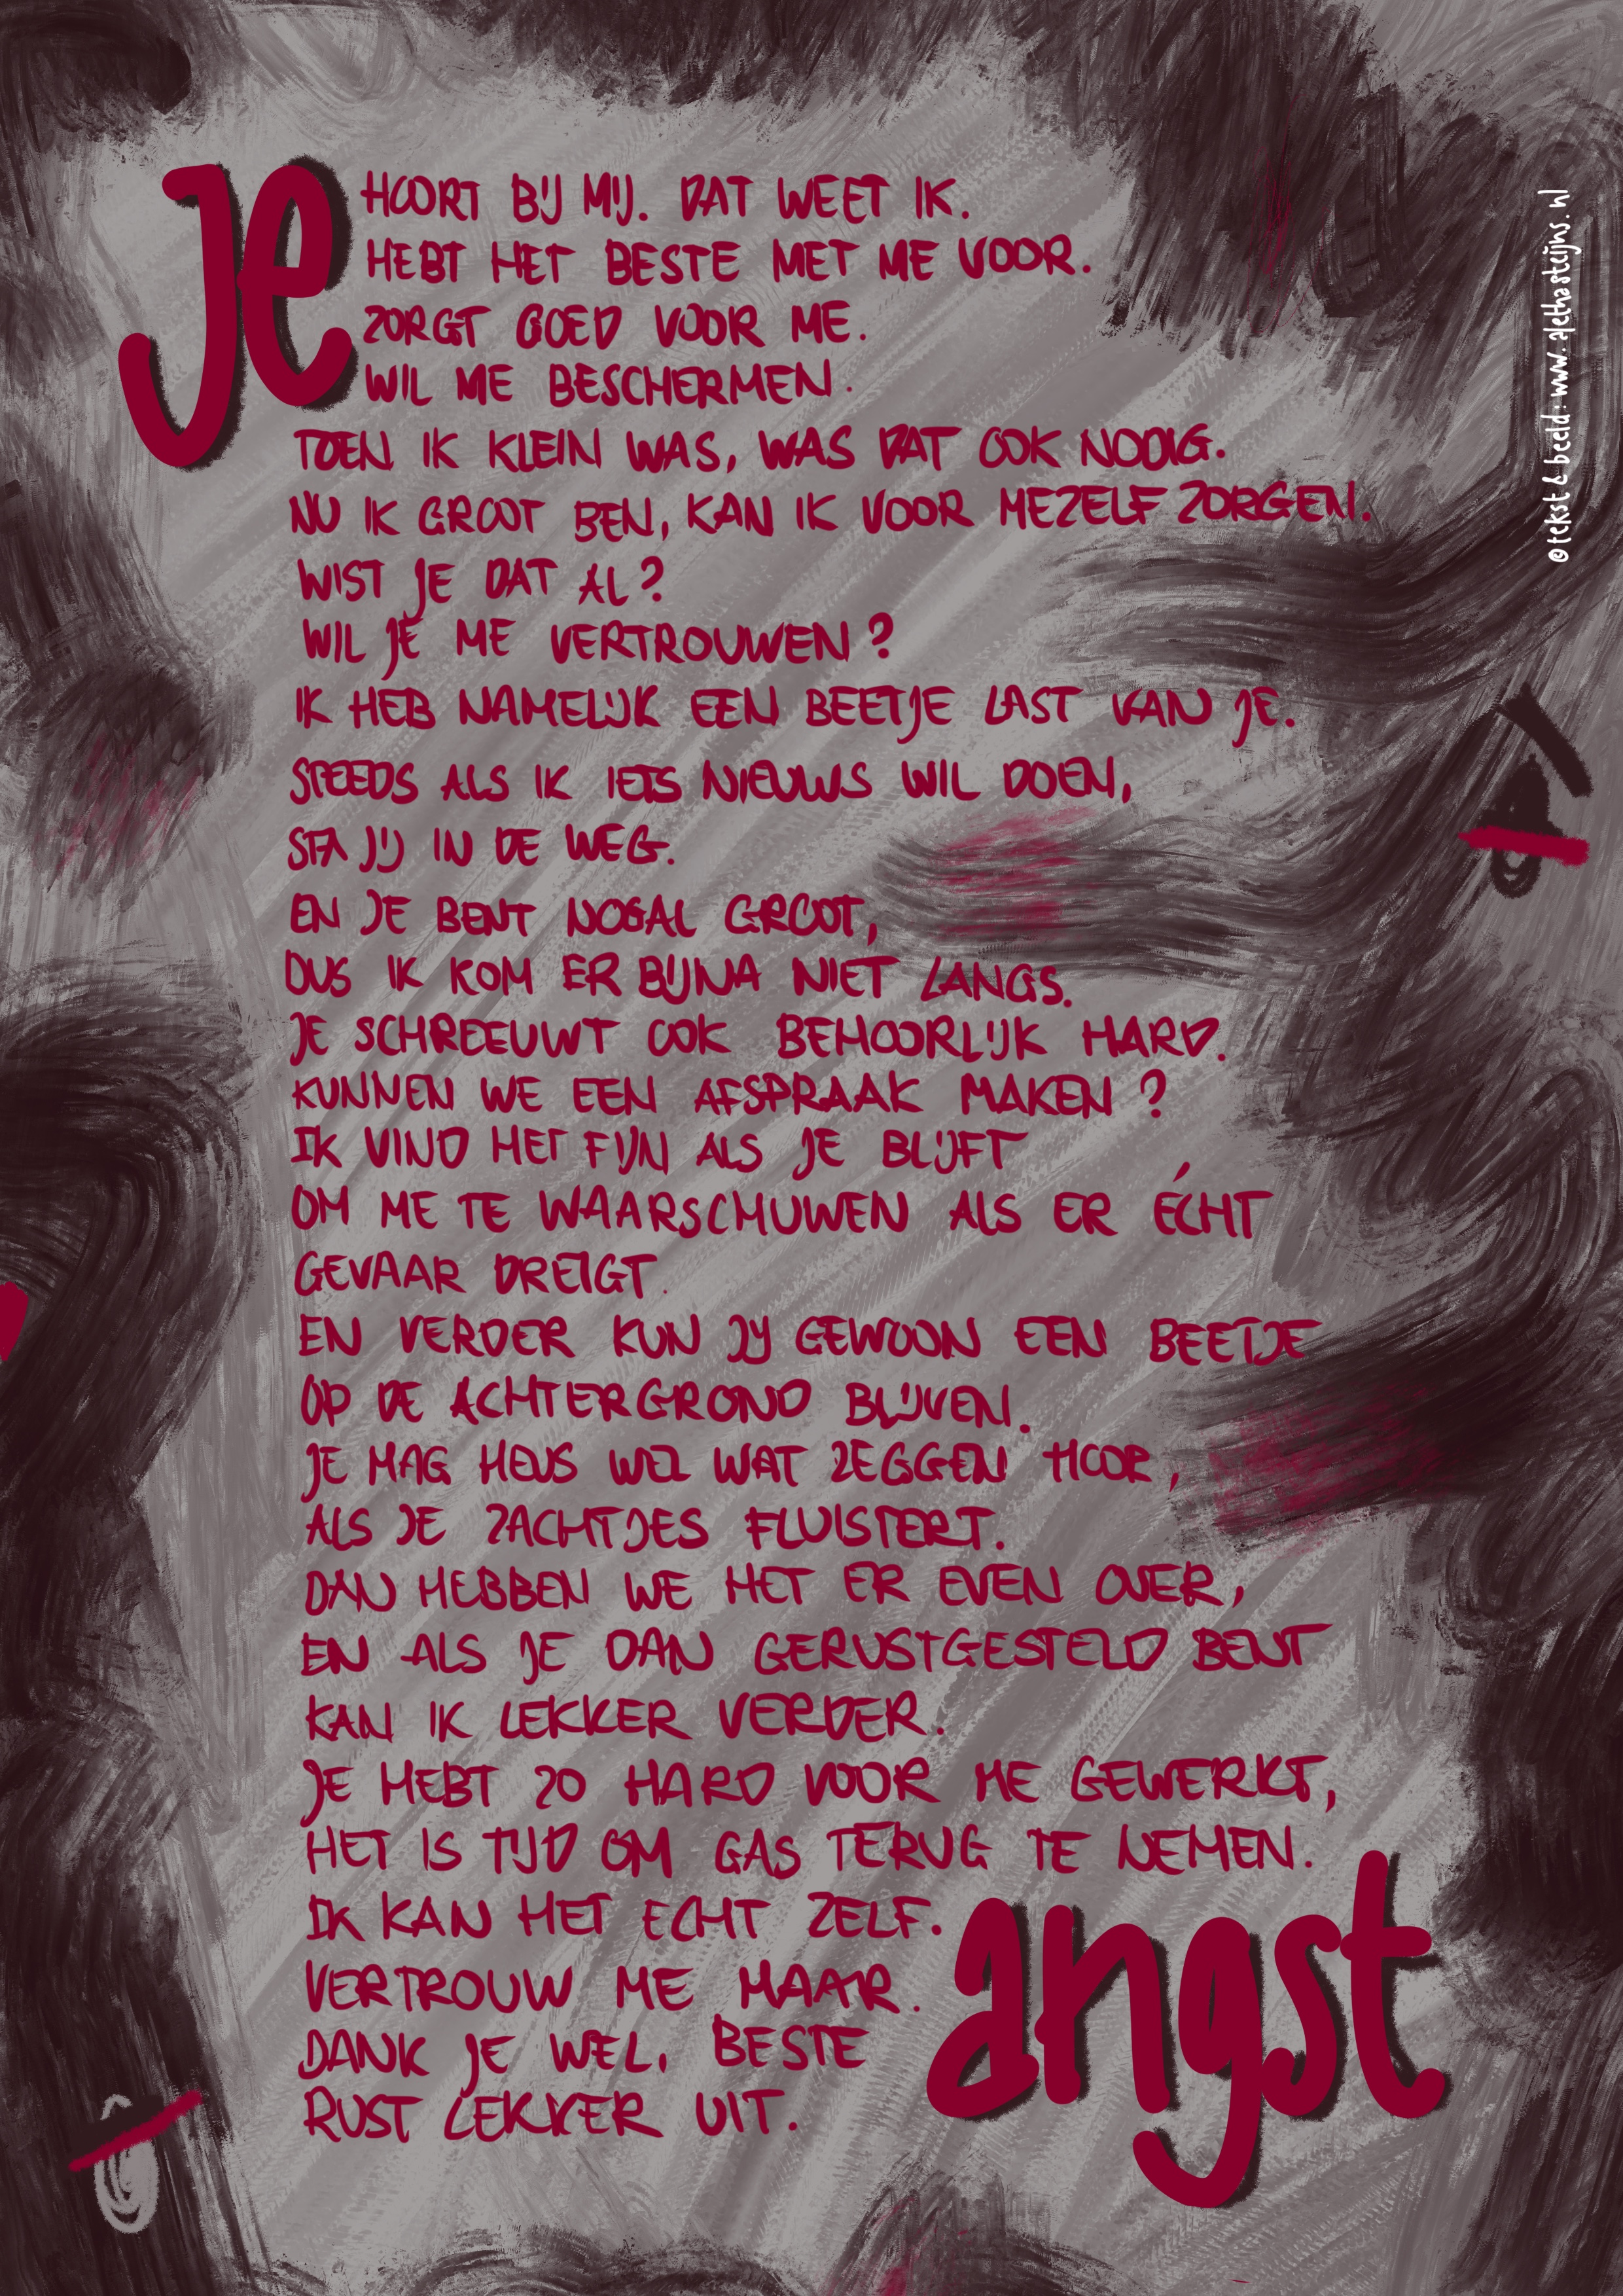 Je HOORT BIJ MIJ. DAT WEET IK.
HEBT HET BESTE MET ME VOOR.
ZORGT GOED VOOR ME.
WIL ME BESCHERMEN.
TOEN IK KLEIN WAS, WAS DAT OOK NODIG.
NU IK GROOT BEN, KAN IK VOOR MEZELF ZORGEN.
WIST JE DAT AL?
WIL JE ME VERTROUWEN?
IK HEB NAMELIJK EEN BEETJE LAST VAN JE.
STEEDS ALS IK IETS NIEUWS WIL DOEN,
STA JIJ IN DE WEG.
EN JE BENT NOGAL GROOT,
DUS IK KOM ER BIJNA NIET LANGS.
JE SCHREEUWT OOK BEHOORLIJK HARD.
KUNNEN WE EEN AFSPRAAK MAKEN?
IK VIND HET FIJN ALS JE BLIJFT
OM ME TE WAARSCHUWEN ALS ER ÉCHT
GEVAAR DREIGT.
EN VERDER KUN JIJ GEWOON EEN BEETJE
OP DE ACHTERGROND BLIJVEN.
JE MAG HEUS WEL WAT ZEGGEN HOOR,
ALS JE ZACHTJES FLUISTERT.
DAN HEBBEN WE HET ER EVEN OVER,
EN ALS JE DAN GERUSTGESTELD BENT
KAN IK LEKKER VERDER.
JE HEBT ZO HARD VOOR ME GEWERKT,
HET IS TIJD OM GAS TERUG TE NEMEN.
IK KAN HET ECHT ZELF.
VERTROUW ME MAAR.
DANK JE WEL, BESTE angst
RUST LEKKER UIT.
© tekst & beeld: www.alethasteijns.nl